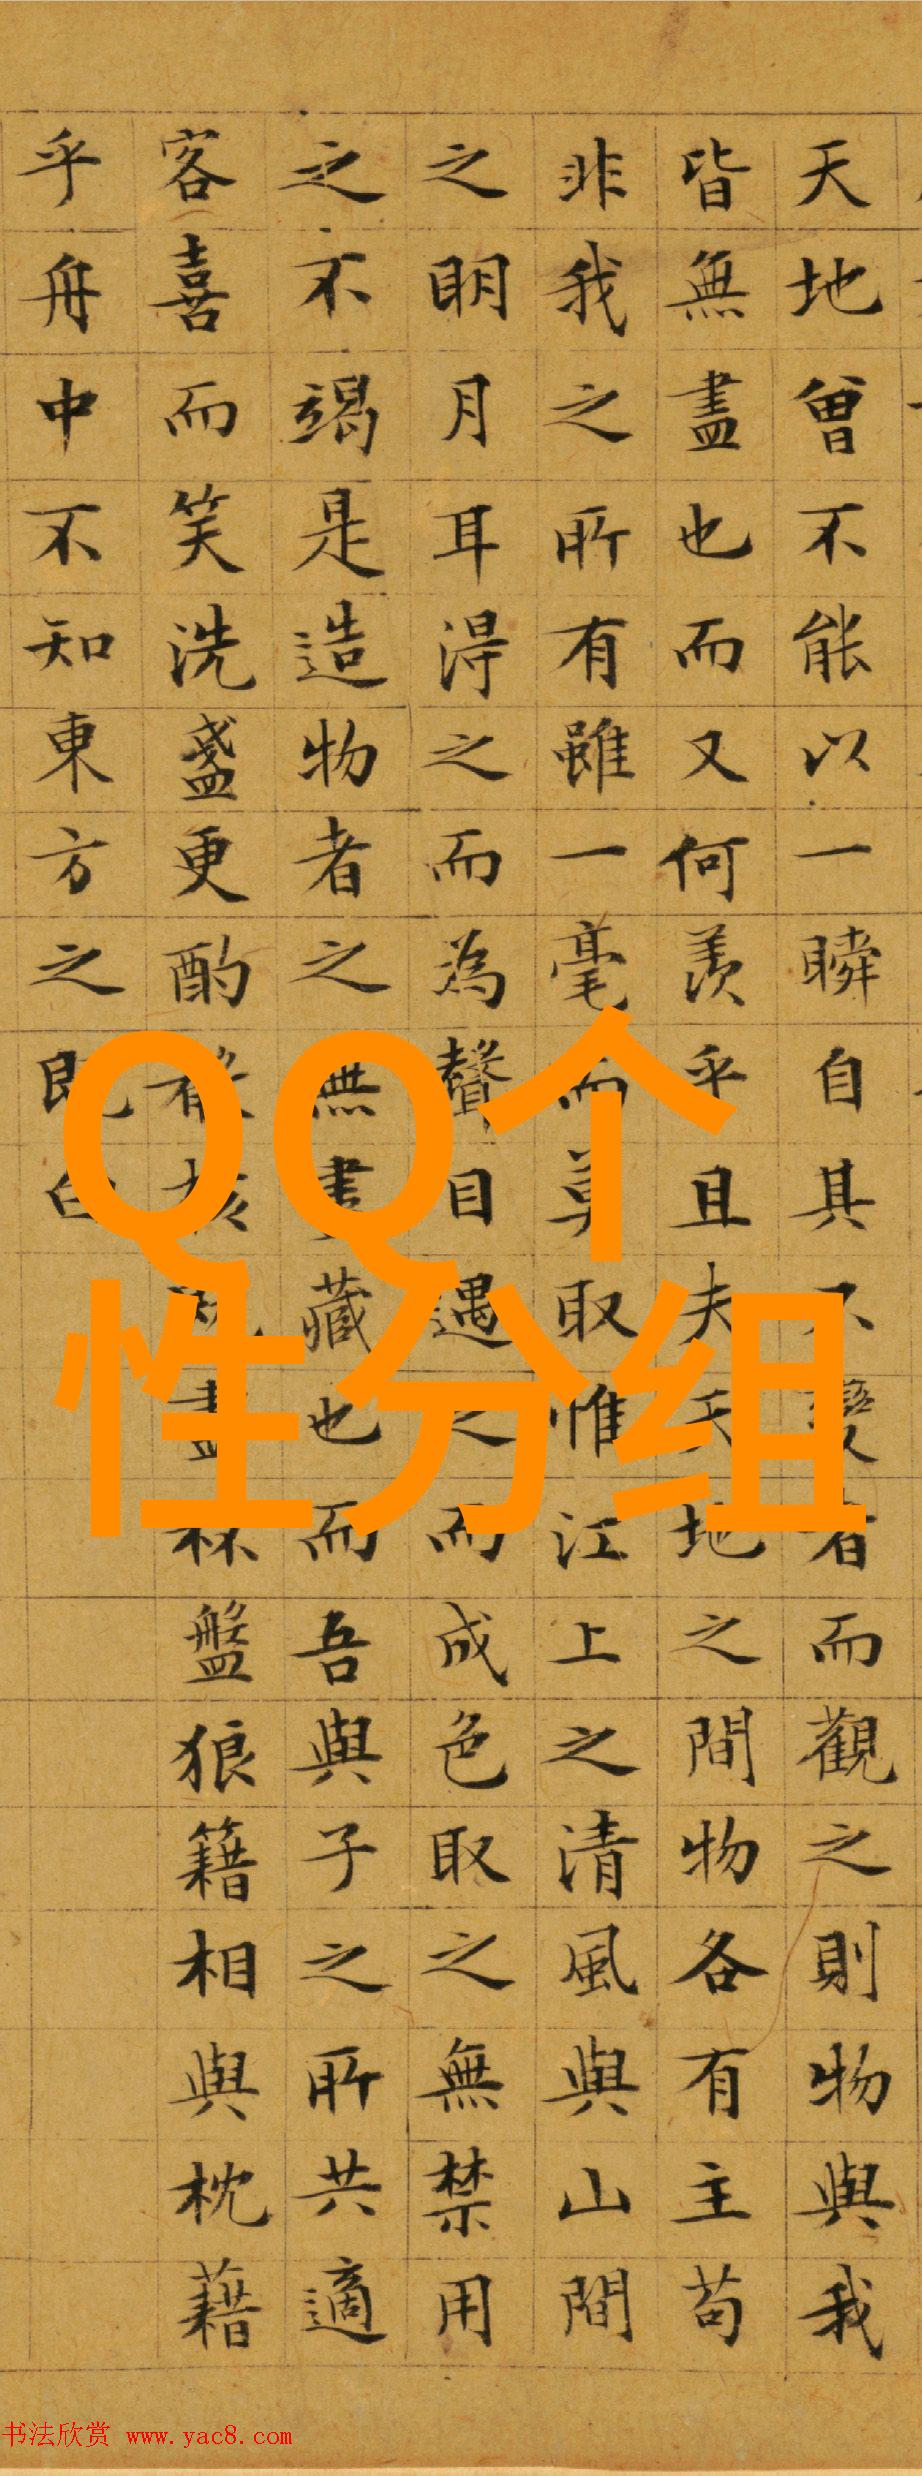 天地曾不能以一瞬自其不變者而觀之則物與我
皆無盡也而又何羨乎且夫天地之間物各有主苟
非我之所有雖一毫而莫取惟江上之清風與山間
之明月耳得之而為聲目遇之而成色取之無禁用
之不竭是造物者之無盡藏也而吾與子之所共適
客喜而笑洗盞更酌殽核既盡杯盤狼籍相與枕藉
乎舟中不知東方之既白
QQ个
性分组
书法欣赏 www.yac8.com